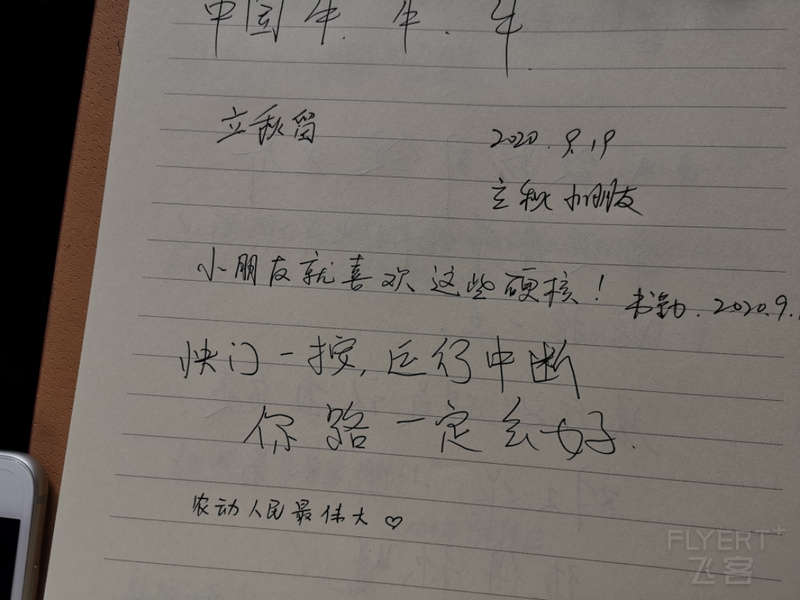 中国牛.牛.牛
立秋留 2020.9.19
立秋小朋友
小朋友就喜欢这些硬核! 2020.9.
快门一按,运行中断
你路一定会好.
农动人民最伟大♡
FLYERT+
飞客